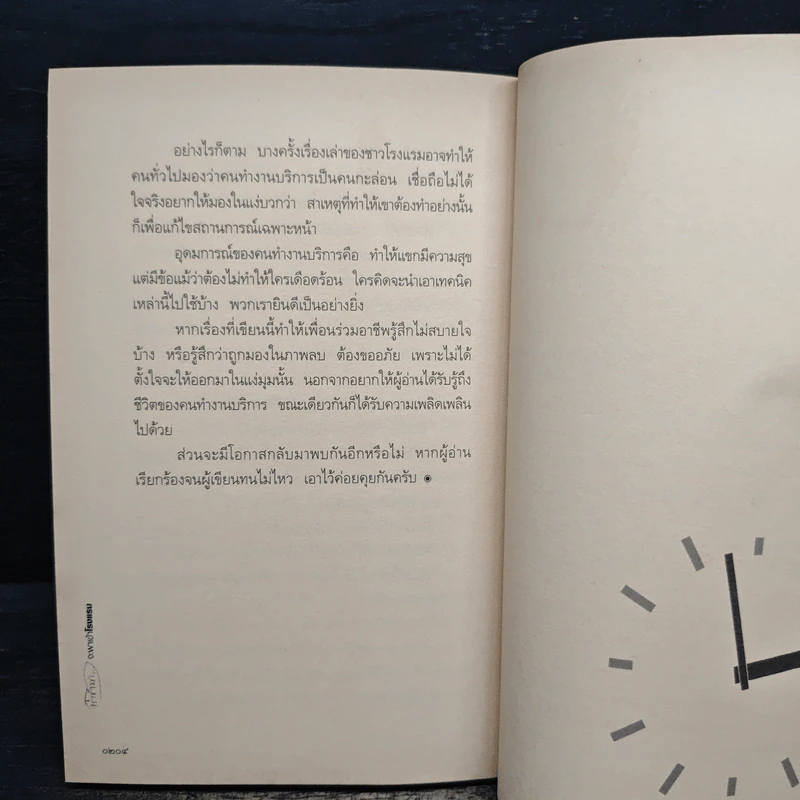 อย่างไรก็ตาม บางครั้งเรื่องเล่าของชาวโรงแรมอาจทำให้
คนทั่วไปมองว่าคนทำงานบริการเป็นคนกะล่อน เชื่อถือไม่ได้
ใจจริงอยากให้มองในแง่บวกว่า สาเหตุที่ทำให้เขาต้องทำอย่างนั้น
ก็เพื่อแก้ไขสถานการณ์เฉพาะหน้า
อุดมการณ์ของคนทำงานบริการคือ ทำให้แขกมีความสุข
แต่มีข้อแม้ว่าต้องไม่ทำให้ใครเดือดร้อน ใครคิดจะนำเอาเทคนิค
เหล่านี้ไปใช้บ้าง พวกเรายินดีเป็นอย่างยิ่ง
หากเรื่องที่เขียนนี้ทำให้เพื่อนร่วมอาชีพรู้สึกไม่สบายใจ
บ้าง หรือรู้สึกว่าถูกมองในภาพลบ ต้องขออภัย เพราะไม่ได้
ตั้งใจจะให้ออกมาในแง่มุมนั้น นอกจากอยากให้ผู้อ่านได้รับรู้ถึง
ชีวิตของคนทำงานบริการ ขณะเดียวกันก็ได้รับความเพลิดเพลิน
ไปด้วย
ส่วนจะมีโอกาสกลับมาพบกันอีกหรือไม่ หากผู้อ่าน
เรียกร้องจนผู้เขียนทนไม่ไหว เอาไว้ค่อยคุยกันครับ
จะพาเข้าโรงแรม
๐๒๐๔